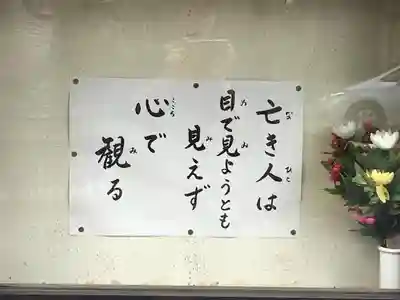 亡き人は
目で見ようとも
見えず
心で
観る